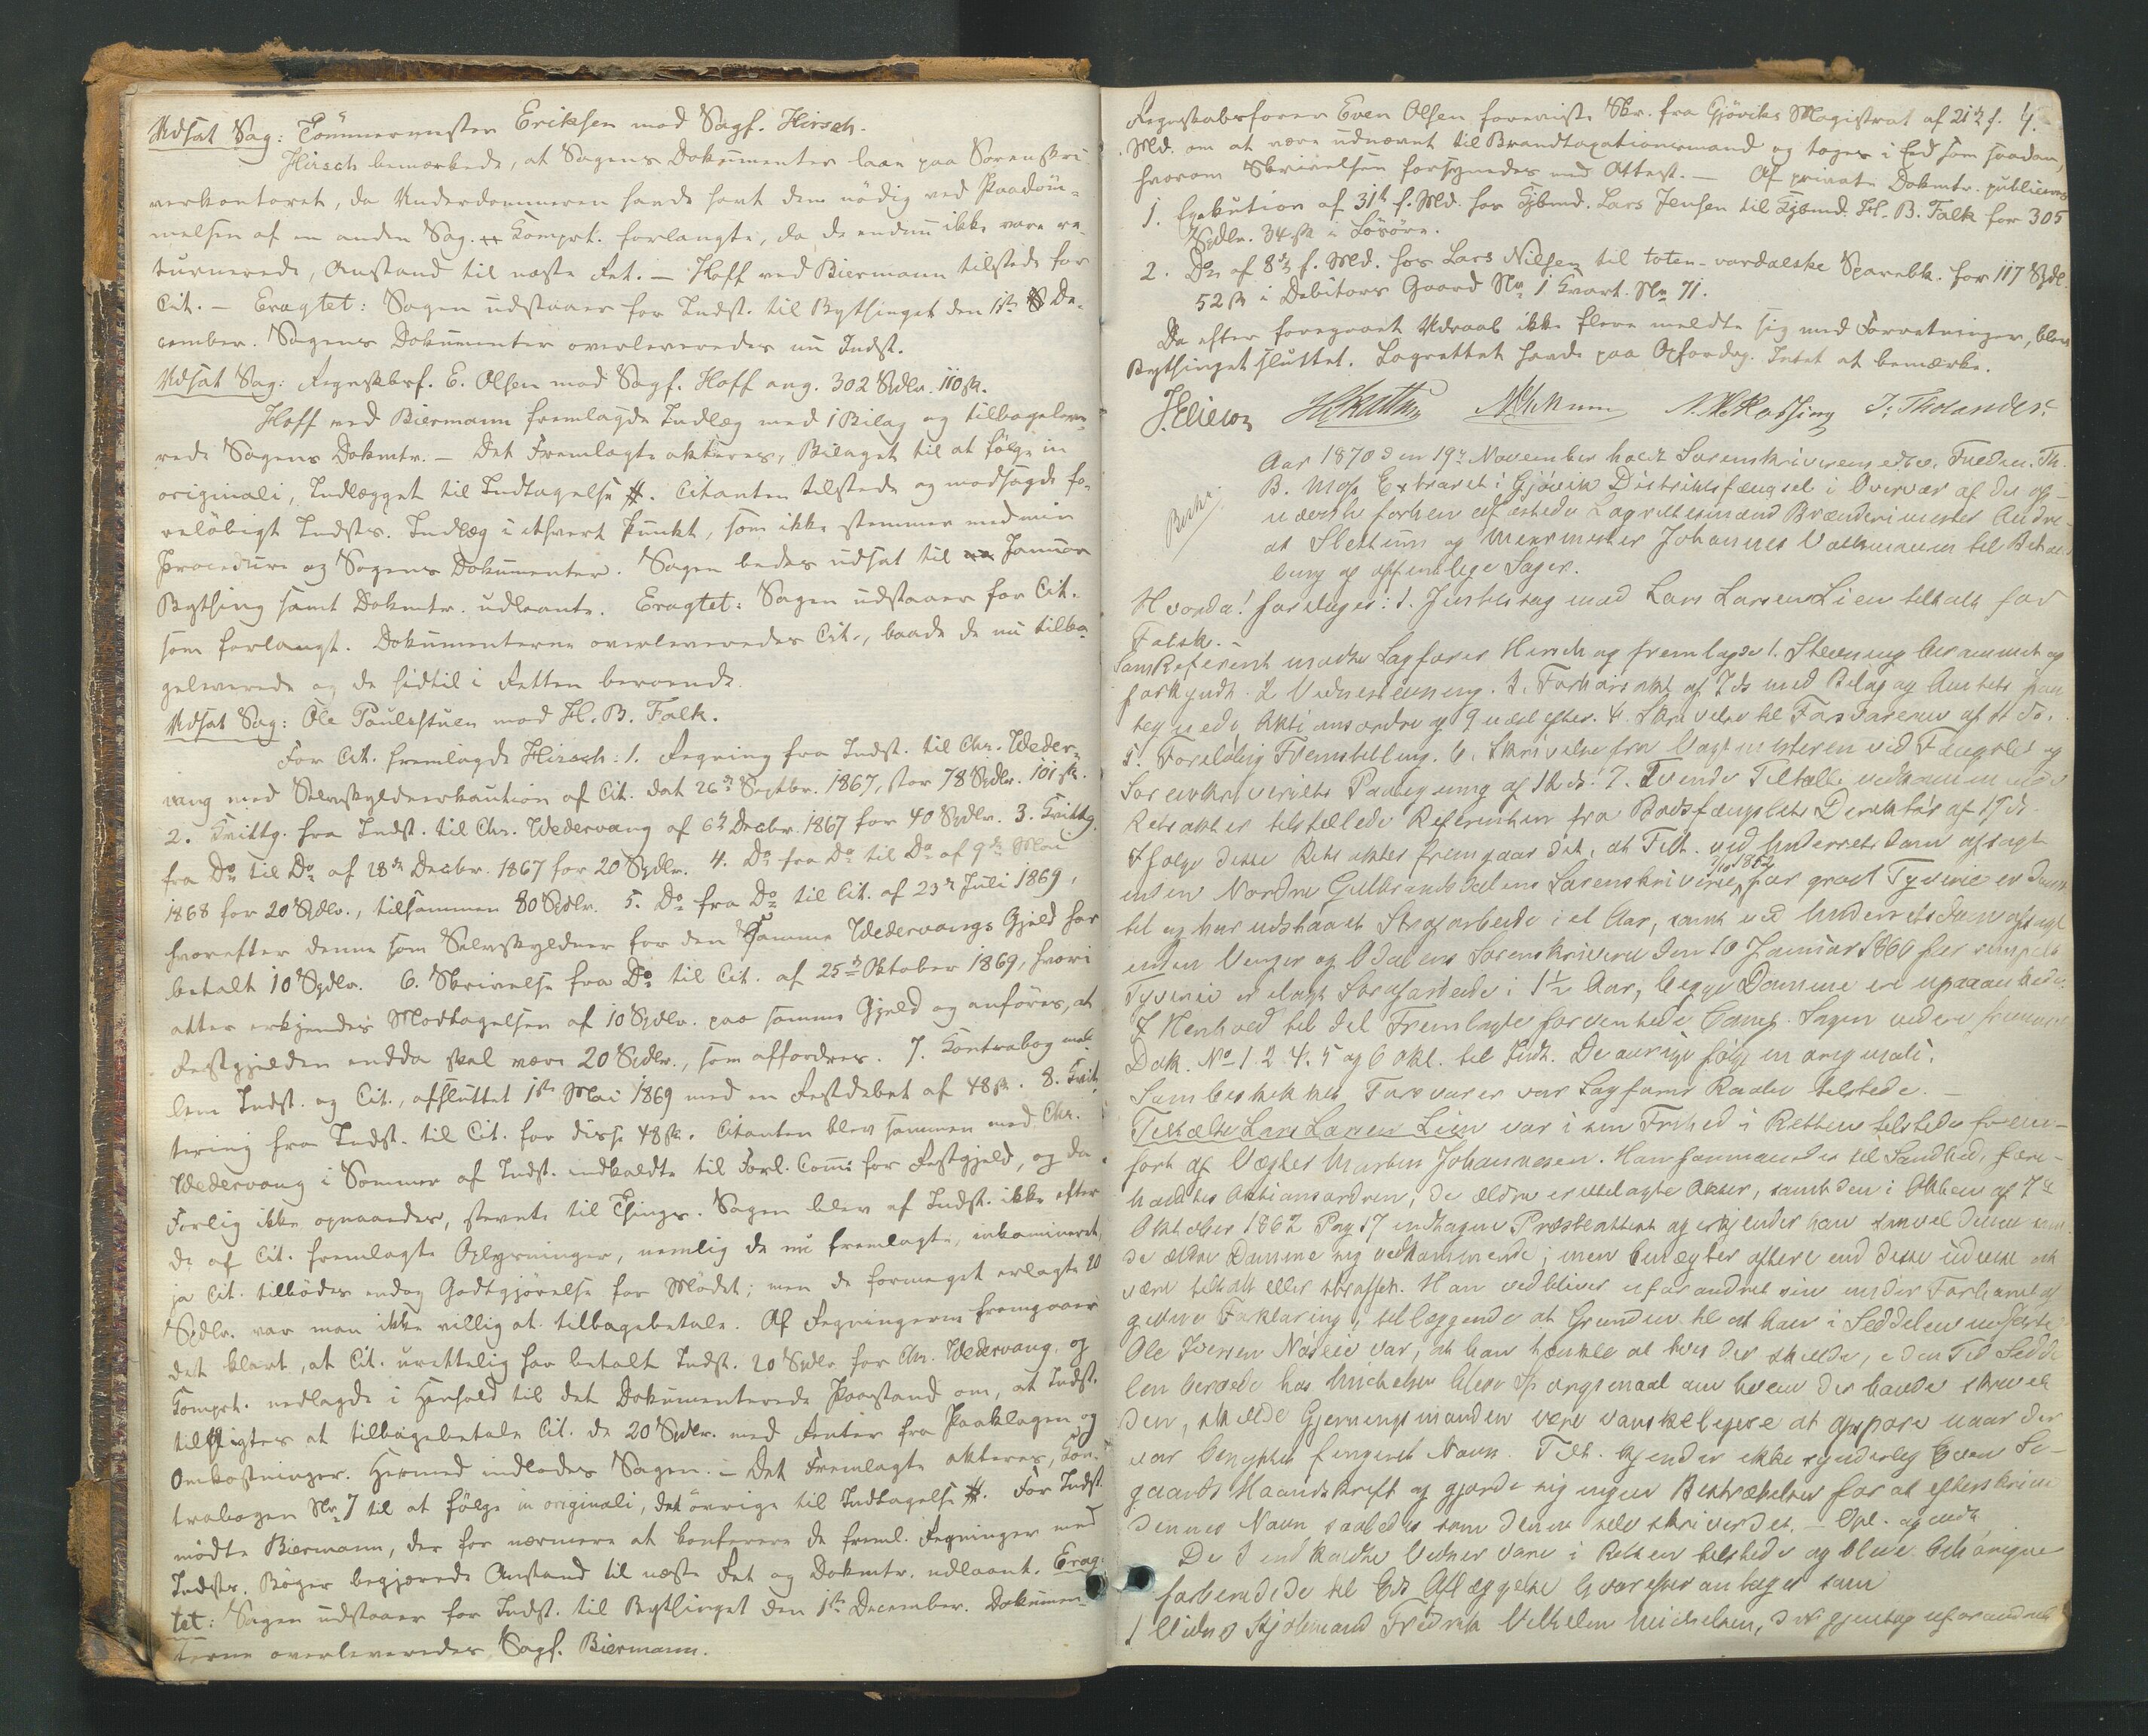 Udsat Sag: Tömmermester Eriksen mod Sagf. Hirsch.
Hirsch bemærkede, at Sagens Dokumenter laae paa Sorenskri-
verkontoret, da Underdommeren havde havt dem nödig ved Paadöm-
melsen af en anden Sag. Komprt. forlangte, da de endnu ikke vare re-
turnerede, Anstand til næste Ret. — Hoff ved Biermann tilstede for
Cit. — Eragtet: Sagen udstaaer for Indst. til Bythinget den 1ste De-
cember. Sagens Dokumenter overleveredes nu Indst.
Udsat Sag: Regnskbsf. E. Olsen mod Sagf. Hoff ang. 302 Spdlr. 110 sk.
Hoff ved Biermann fremlagde Indlæg med 1 Bilag og tilbageleve-
rede Sagens Dokmtr. — Det Fremlagte akteres, Bilaget til at fölge in
originali, Indlægget til Indtagelse #. Citanten tilstede og modsagde fo-
relöbigt Indsts. Indlæg i ethvert Punkt, som ikke stemmer med min
Procedure og Sagens Dokumenter. Sagen bedes udsat til Januar
Bything samt Dokmtr. udlaante. Eragtet: Sagen udstaaer for Cit.
som forlangt. Dokumenterne overleveredes Cit., baade de nu tilba-
geleverede og de hidtil i Retten beroende.
Udsat Sag: Ole Paulsstuen mod H. B. Falk.
For Cit. fremlagde Hirsch: 1. Regning fra Indst. til Chr. Weder-
vang med Selvskyldnerkaution af Cit. dat 26de Septbr. 1867, stor 78 Spdlr. 101 sk.
2. Kvittg. fra Indst. til Chr. Wedervang af 6te Decbr. 1867 for 40 Spdlr. 3. Kvittg.
fra Do til Do af 28de Decbr. 1867 for 20 Spdlr. 4. Do fra Do til Do af 9de Mai
1868 for 20 Spdlr., tilsammen 80 Spdlr. 5. Do fra Do til Cit. af 23de Juli 1869,
hvorefter denne som Selvskyldner for den Samme Wedervangs Gjeld har
betalt 10 Spdlr. 6. Skrivelse fra Do til Cit. af 25de Oktober 1869, hvori
atter erkjendes Modtagelsen af 10 Spdlr. paa samme Gjeld og anföres, at
Restgjelden endda skal være 20 Spdlr., som affordres. 7. Kontrabog mel-
lem Indst. og Cit., afsluttet 1ste Mai 1869 med en Restdebet af 48 sk. 8. Kvit-
tering fra Indst. til Cit. for disse 48 sk. Citanten blev sammen med Chr.
Wedervang i Sommer af Indst. indkaldte til Forl. Comm. for Restgjeld, og da
Forlig ikke opnaaedes, stevnte til Things. Sagen blev af Indst. ikke efter
de af Cit. fremlagte Oplysninger, nemlig de nu fremlagte, inkamineret,
ja Cit. tilbödes endog Godtgjörelse for Mödet; men de formeget erlagte 20
Spdlr. var man ikke villig at tilbagebetale. Af Regningerne fremgaaer
det klart, at Cit. urettelig har betalt Indst. 20 Spdlr. for Chr. Wedervang, og
Komprt. nedlagde i Henhold til det Dokumenterede Paastand om, at Indst.
tilpligtes at tilbagebetale Cit. de 20 Spdlr. med Renter fra Paaklagen og
Omkostninger. Hermed indlodes Sagen. — Det Fremlagte akteres, Kon-
trabogen No 7 til at fölge in originali, det övrige til Indtagelse #. For Indst.
mödte Biermann, der for nærmere at konferere de freml. Regninger med
Indsts. Böger begjærede Anstand til næste Ret og Dokmtr. udlaant. Erag-
tet: Sagen udstaaer for Indst. til Bythinget den 1ste December. Dokumen-
terne overleveredes Sagf. Biermann.
4.
Regnskabsförer Even Olsen foreviste Skr. fra Gjöviks Magistrat af 21de f.
Md. om at være udnævnt til Brandtaxationsmand og toges i Eed som saadan,
hvorom Skrivelsen forsynedes med Attest. — Af private Dokmtr. publiceres
1. Exekution af 31te f. Md. hos Kjbmd. Lars Jensen til Kjbmd. H. B. Falk for 305
Spdlr. 34 sk i Lösöre.
2. Do af 8de f. Md. hos Lars Nilsen til toten-vardalske Sparebk. for 117 Spdl.
52 sk i Debitors Gaard No 1 Kvart. No 71.
Da efter foregaaet Udraab ikke flere meldte sig med Forretninger, blev
Bythinget sluttet. Lagrettet havde paa Opfordrg. Intet at bemærke.
J. Tholander.
Aar 1870 den 19de November holdt Sorenskriverens edsv. Fuldm. Th.
B. Moss Extraret i Gjövik Distriktsfængsel i Overvær af de op-
nævnte forhen edfæstede Lagrettesmænd Brænderimester Andre-
as Slettum og Murmester Johannes til Behand-
ling af offentlige Sager.
Hvorda! foretages: 1. Justitssag mod Lars Larsen Lien tiltalt for
Falsk. —
Som Referent mödte Sagförer Hirsch og fremlagde 1. Stevning berammet og
forkyndt. 2. Vidnestevning. 3. Forhörsakt af 7 ds med Bilag og Amtets paa
tegnede Aktionsordre og 9 . 4. Skrivelse til Forsvareren af do.
5. Forelöbig Fremstilling. 6. Skrivelse fra Vagtmesteren ved Fængslet og
Sorenskriveriets Paategning af ds. 7. Tvende Tiltalte vedkommende
Retsakter tilstillede Referenten fra Bodsfængslets Direktör af 17 ds.
Ifölge disse Retsakter fremgaar det, at Tilt. ved Underretsdom afsagt
inden Nordre Gulbrandsdalens Sorenskriveri 7/10 1862 for grovt Tyveri er döm
til og har udstaaet Strafarbeide i et Aar, samt ved Underretsdom afsagt
inden Vinger og Odalens Sorenskriveri den 10 Januar 1866 for simpelt
Tyveri er ilagt Strafarbeide i 1½ Aar, begge Domme ere upaaankede.
I Henhold til det Fremlagte forventede Comp. Sagen videre fremmet.
Dok. No 1. 2. 4. 5 og 6 akt. til Indt. De övrige fölge in originali.
Som beskikket Forsvarer var Sagförer Raabe tilstede. —
Tiltalte Lars Larsen Lien var i sin Frihed i Retten tilstede frem-
fört af Vægter Martin Johannesen. Han formanedes til Sandhed, fore-
holdtes Aktionsordren, de ældre ertagte Akter, samt den i Akten af 7de
Oktober 1862 Pag 17 indtagne Præsteattest og erkjender han saavel denne som
de ældre Domme sig vedkommende; men benægter oftere end disse at
være tiltalt eller straffet. Han vedbliver uforandret sin under Forhöret af
givne Forklaring, tillæggende at Grunden til at han i Seddelen
Ole Iversen var, at han tænkte at hvis der skulde, i den Tid Sedde
len beroede hos Michelsen blive Spörgsmaal om hvem der havde skrevet
den, skulde Gjerningsmanden være vanskeligere at opspore naar der
var benyttet fingeret Navn. Tilt. kjender ikke synderlig Even So-
gaards Haandskrift og gjorde sig ingen Bestræbelser for at efterskrive
dennes Navn saaledes som denne selv skriver det. — Opl. og vedt.
De indkaldte Vidner vare i Retten tilstede og bleve behörigen
forberedede til Eds Aflæggelse hvorefter antoges som
1 Vidne Kjöbmand Fredrik Vilhelm Michelsen, der gjentog uforandret